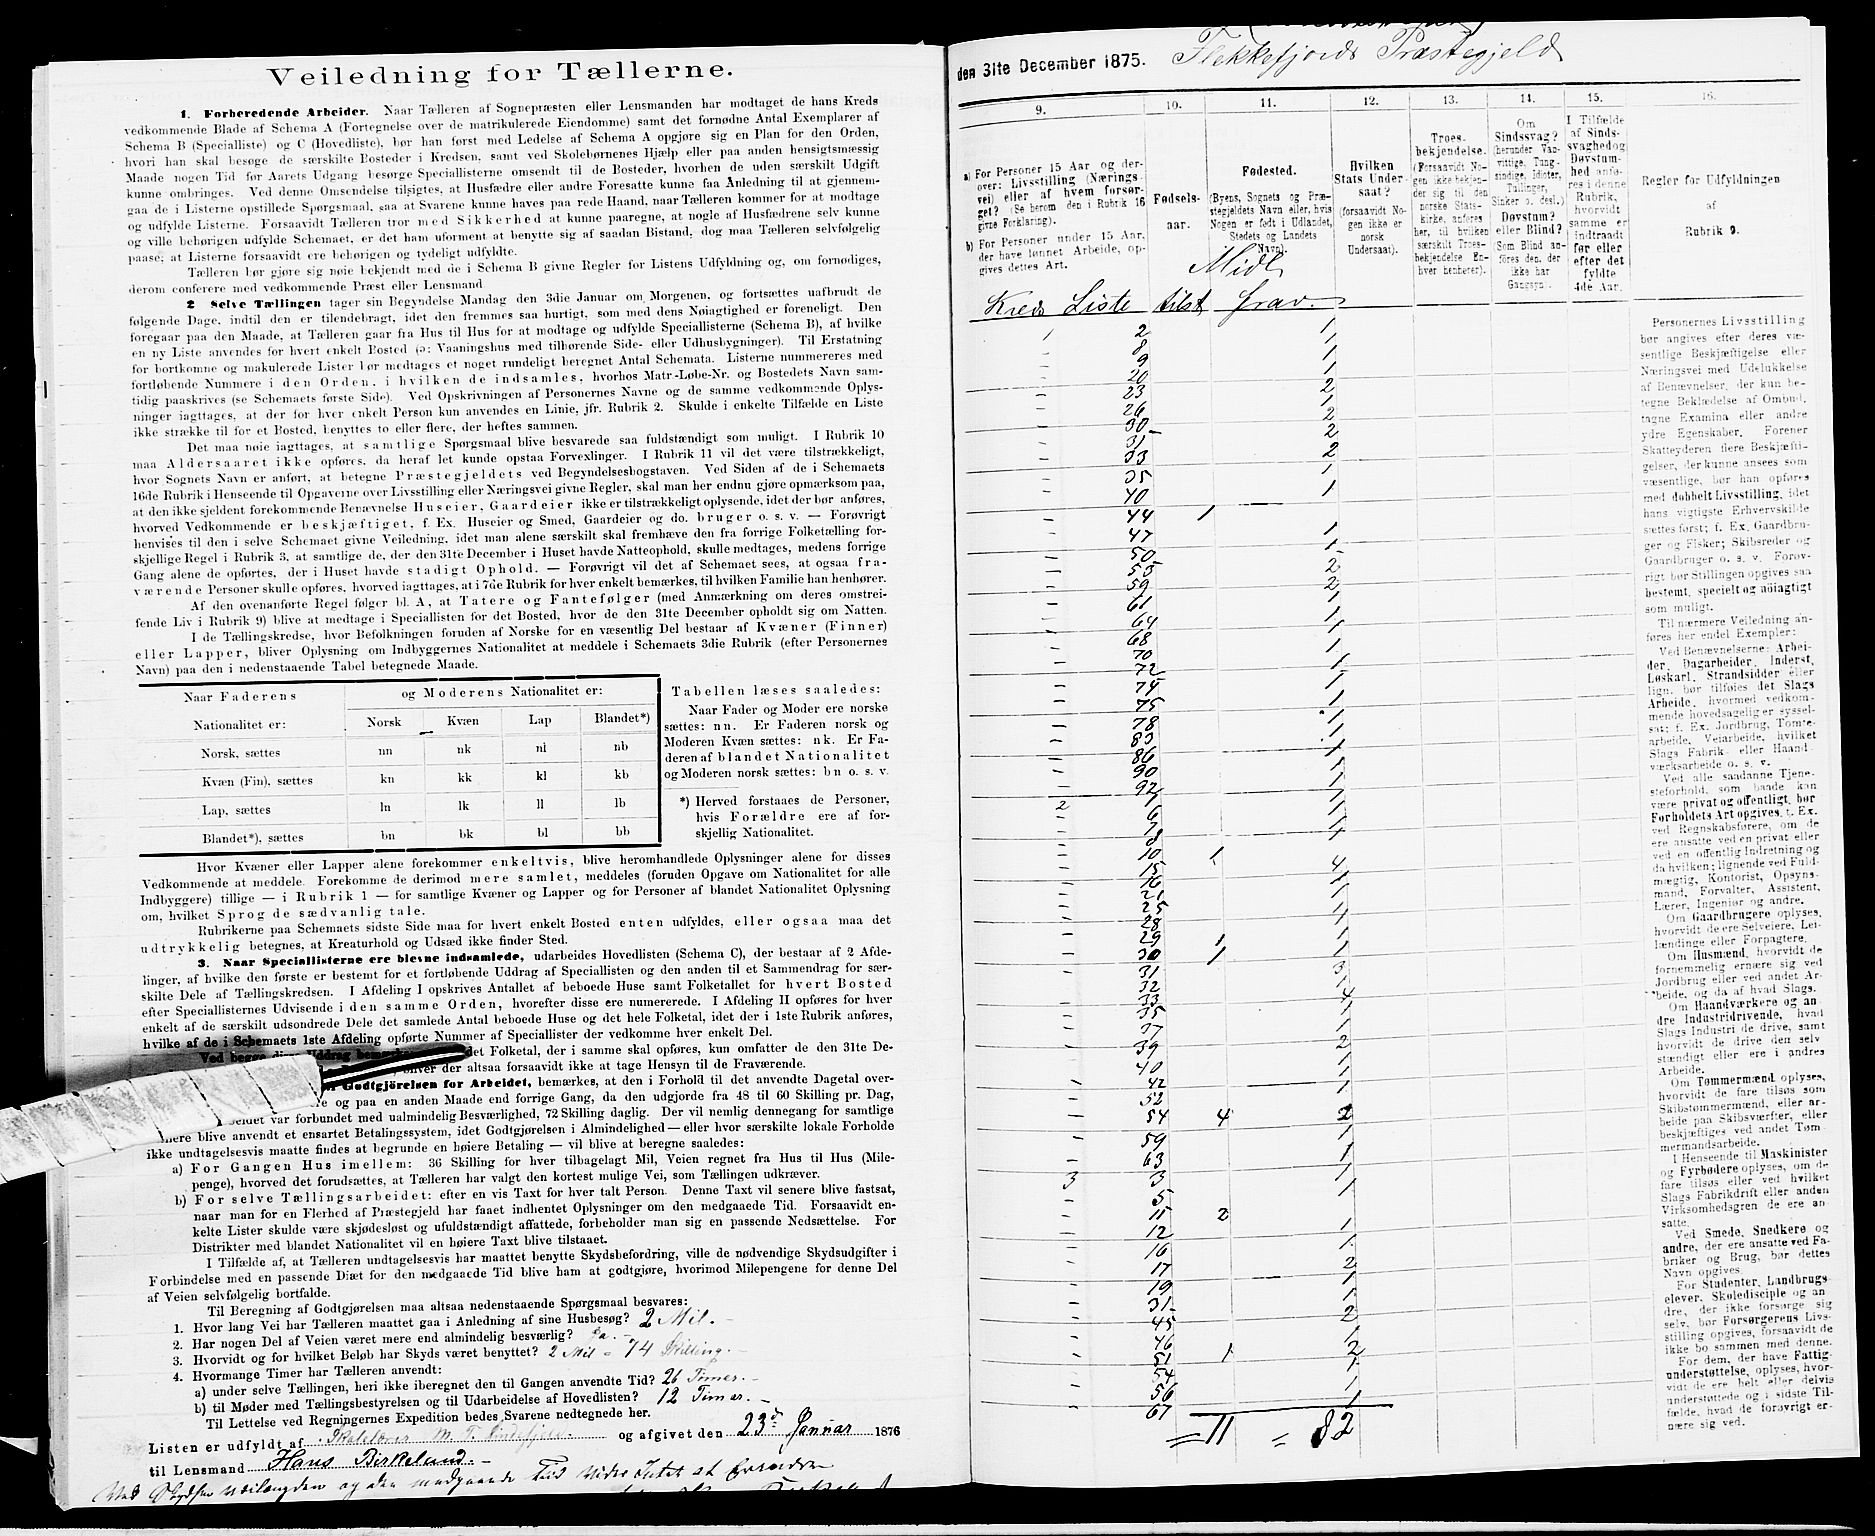 Veiledning for Tællerne.
1. Forberedende Arbeider. Naar Tælleren af Sognepræsten eller Lensmanden har modtaget de hans Kreds
vedkommende Blade af Schema A (Fortegnelse over de matrikulerede Eiendomme) samt det fornødne Antal Exemplarer af
Schema B (Specialliste) og C (Hovedliste), bør han først med Ledelse af Schema A opgjøre sig en Plan for den Orden,
hvori han skal besøge de særskilte Bosteder i Kredsen, samt ved Skolebørnenes Hjælp eller paa anden hensigtsmæssig
Maade nogen Tid før Aarets Udgang besørge Speciallisterne omsendt til de Bosteder, hvorhen de uden særskilt Udgift
kunne ombringes. Ved denne Omsendelse tilsigtes, at Husfædre eller andre Foresatte kunne faa Anledning til at gjennem-
gaa de i Listerne opstillede Spørgsmaal, saa at Svarene kunne haves paa rede Haand, naar Tælleren kommer for at modtage
og udfylde Listerne. Forsaavidt Tælleren tror med Sikkerhed at kunne paaregne, at nogle af Husfædrene selv kunne
og ville behørigen udfylde Schemaet, er det ham uforment at benytte sig af saadan Bistand, dog maa Tælleren selvfølgelig
paase, at Listerne forsaavidt ere behørigen og tydeligt udfyldte.
Tælleren bør gjøre sig nøie bekjendt med de i Schema B givne Regler for Listens Udfyldning og, om fornødiges,
derom conferere med vedkommende Præst eller Lensmand
2 Selve Tællingen tager sin Begyndelse Mandag den 3die Januar om Morgenen, og fortsættes uafbrudt de
følgende Dage, indtil den er tilendebragt, idet den fremmes saa hurtigt, som med dens Nøiagtighed er foreneligt. Den
foregaar paa den Maade, at Tælleren gaar fra Hus til Hus for at modtage og udfylde Speciallisterne (Schema B), af hvilke
en ny Liste anvendes for hvert enkelt Bosted (ɔ: Vaaningshus med tilhørende Side- eller Udhusbygninger). Til Erstatning
for bortkomne og makulerede Lister bør medtages et noget rundeligt beregnet Antal Schemata. Listerne nummereres med
fortløbende Nummere i den Orden, i hvilken de indsamles, hvorhos Matr.-Løbe-Nr. og Bostedets Navn sam-
tidig paaskrives (se Schemaets første Side). Ved Opskrivningen af Personernes Navne og de samme vedkommende Oplys-
ninger iagttages, at der for hver enkelt Person kun anvendes en Linie, jfr. Rubrik 2. Skulde i enkelte Tilfælde en Liste
ikke strække til for et Bosted, benyttes to eller flere, der heftes sammen.
Det maa nøie iagttages, at samtlige Spørgsmaal blive besvarede saa fuldstændigt som muligt. I Rubrik 10
maa Aldersaaret ikke opføres, da heraf let kunde opstaa Forvexlinger. I Rubrik 11 vil det være tilstrækkeligt,
hvor Sognets Navn er anført, at betegne Præstegjeldets ved Begyndelsesbogstaven. Ved Siden af de i Schemaets
16de Rubrik i Henseende til Opgaverne over Livsstilling eller Næringsvei givne Regler, skal man her endnu gjøre opmærksom paa,
at den ikke sjeldent forekommende Benævnelse Huseier, Gaardeier ikke er tilstrækkeligt oplysende, idet der bør anføres,
hvorved Vedkommende er beskjæftiget, f. Ex. Huseier og Smed, Gaardeier og do. bruger o. s. v. — Forøvrigt
henvises til den i selve Schemaet givne Veiledning, idet man alene særskilt skal fremhæve den fra forrige Folketælling for-
skjellige Regel i Rubrik 3, at samtlige de, der den 31te December i Huset havde Natteophold, skulle medtages, medens forrige
Gang alene de opførtes, der i Huset havde stadigt Ophold. — Forøvrigt vil det af Schemaet sees, at ogsaa fra-
værende Personer skulle opføres, hvorved iagttages, at i 7de Rubrik for hver enkelt bemærkes, til hvilken Familie han henhører.
Af den ovenanførte Regel følger bl. A, at Tatere og Fantefølger (med Anmærkning om deres omstrei-
fende Liv i Rubrik 9) blive at medtage i Speciallisten for det Bosted, hvor de den 31te December opholdt sig om Natten.
I de Tællingskredse, hvor Befolkningen foruden af Norske for en væsentlig Del bestaar af Kvæner (Finner)
eller Lapper, bliver Oplysning om Indbyggernes Nationalitet at meddele i Schemaets 3die Rubrik (efter Personernes
Navn) paa den i nedenstaaende Tabel betegnede Maade.
Naar Faderens og Moderens Nationalitet er:
Nationalitet er: Norsk Kvæn Lap Blandet*)
Norsk, sættes nn nk nl nb
Kvæn (Fin), sættes kn kk kl kb
Lap, sættes ln lk ll lb
Blandet*), sættes bn bk bl bb
Tabellen læses saaledes:
Naar Fader og Moder ere norske
sættes: nn. Er Faderen norsk og
Moderen Kvæn sættes: nk. Er Fa-
deren af blandet Nationalitet
og Moderen norsk sættes: bn o. s. v.
*) Herved forstaaes de Personer,
hvis Forældre ere af for-
skjellig Nationalitet.
Hvor Kvæner eller Lapper alene forekommer enkeltvis, blive heromhandlede Oplysninger alene for disses
Vedkommende at meddele. Forekomme de derimod mere samlet, meddeles (foruden Opgave om Nationalitet for alle
Indbyggere) tillige — i Rubrik 1 — for samtlige Kvæner og Lapper og for Personer af blandet Nationalitet Oplysning
om, hvilket Sprog de sædvanlig tale.
Rubrikerne paa Schemaets sidste Side maa for hvert enkelt Bosted enten udfyldes, eller ogsaa maa det
udtrykkelig betegnes, at Kreaturhold og Udsæd ikke finder Sted.
3. Naar Speciallisterne ere blevne indsamlede, udarbeides Hovedlisten (Schema C), der bestaar af 2 Afde-
linger, af hvilke den første er bestemt for et fortløbende Uddrag af Speciallisten og den anden til et Sammendrag for sær-
skilte Dele af Tællingskredsen. I Afdeling I opskrives Antallet af beboede Huse samt Folketallet for hvert Bosted
efter Speciallisternes Udvisende i den samme Orden, hvorefter disse ere nummererede. I Afdeling II opføres for hver
enkelt af de særskilt udsondrede Dele det samlede Antal beboede Huse og det hele Folketal, idet der i 1ste Rubrik anføres,
hvilke af de i Schemaets 1ste Afdeling opførte Nummer af Speciallister der vedkomme hver enkelt Del.
Ved begge disse Uddrag bemærkes det Folketal, der i samme skal opføres, kun omfatter de den 31te De-
bliver der altsaa forsaavidt ikke at tage Hensyn til de Fraværende.
Godtgjörelsen for Arbeidet, bemærkes, at den i Forhold til det anvendte Dagetal over-
re og paa en anden Maade end forrige Gang, da den udgjorde fra 48 til 60 Skilling pr. Dag,
beidet var forbundet med ualmindelig Besværlighed, 72 Skilling daglig. Der vil nemlig dennegang for samtlige
nere blive anvendt et ensartet Betalingssystem, idet Godtgjørelsen i Almindelighed — eller hvor særskilte lokale Forholde
ikke undtagelsesvis maatte findes at begrunde en høiere Betaling — vil blive at beregne saaledes:
a) For Gangen Hus imellem: 36 Skilling for hver tilbagelagt Mil, Veien regnet fra Hus til Hus (Mile-
penge), hvorved det forudsættes, at Tælleren har valgt den kortest mulige Vei, som Tællingen udkræver.
b) For selve Tællingsarbeidet: efter en vis Taxt for hver talt Person. Denne Taxt vil senere blive fastsat,
naar man for en Flerhed af Præstegjeld har faaet indhentet Oplysninger om den medgaaede Tid. Forsaavidt en-
kelte Lister skulde være skjødesløst og ufuldstændigt affattede, forbeholder man sig en passende Nedsættelse. For
Distrikter med blandet Nationalitet vil en høiere Taxt blive tilstaaet.
I Tilfælde af, at Tælleren undtagelsesvis har maattet benytte Skydsbefordring, ville de nødvendige Skydsudgifter i
Forbindelse med en passende Diæt for den medgaaede Tid blive ham at godtgjøre, hvorimod Milepengene for denne Del
af Veien selvfølgelig bortfalde.
Til Beregning af Godtgjørelsen maa altsaa nedenstaaende Spørgsmaal besvares:
1. Hvor lang Vei har Tælleren maattet gaa i Anledning af sine Husbesøg? 2 Mil.
2. Har nogen Del af Veien været mere end almindelig besværlig? Ja.
3. Hvorvidt og for hvilket Beløb har Skyds været benyttet? 2 Mil = 74 Skilling.
4. Hvormange Timer har Tælleren anvendt:
a) under selve Tællingen, heri ikke iberegnet den til Gangen anvendte Tid? 26 Timer.
b) til Møder med Tællingsbestyrelsen og til Udarbeidelse af Hovedlisten? 12 Timer.
Til Lettelse ved Regningernes Expedition bedes Svarene nedtegnede her.
Listen er udfyldt af Skolelærer M. T. og afgivet den 23de Januar 1876
til Lensmand Hans Birkeland.
den 31te December 1875. Flekkefjords Præstegjeld
9. 10. 11. 12. 13. 14. 15. 16.
a) For Personer 15 Aar og der-
over: Livsstilling (Nærings-
vei) eller af hvem forsør-
get? (Se herom den i Rubrik 16
givne Forklaring).
b) For Personer under 15 Aar,
der have lønnet Arbeide, op-
gives dettes Art.
Fødsels-
aar.
Fødested.
(Byens, Sognets og Præ-
stegjeldets Navn eller, hvis
Nogen er født i Udlandet,
Stedets og Landets
Navn).
Hvilken
Stats Under-
saat?
(forsaavidt No-
gen ikke er
norsk
Undersaat).
Troes-
bekjendelse.
(Forsaavidt No-
gen ikke bekjen-
der sig til den
norske Stats-
kirke, anføres
her, til hvilken
særskilt Troes-
bekjendelse En-
hver henhører).
Om
Sindssvag?
(herunder Van-
vittige, Tung-
sindige, Idioter,
Tullinger,
Sinker o. desl.)
Døvstum?
eller Blind?
(Som Blind an-
føres den, der
ikke har
Gangsyn).
I Tilfælde
af Sinds-
svaghed og
Døvstum-
hed anfø-
res i denne
Rubrik,
hvorvidt
samme er
indtraadt
før eller
efter det
fyldte
4de Aar.
Regler for Udfyldningen
af
Rubrik 9.
Midl.
Kreds Liste tilst frav.
1 2 1
– 8 1
– 9 1
– 20 2
– 23 1
– 26 2
– 30 2
– 31 2
– 33 1
– 35 1
– 40
– 44 1
– 47 1
– 50 1
– 53 2
– 59 2
– 61 1
– 64 1
– 68 1
– 70
– 72 1
– 74 1
– 75 1
– 78 1
– 83 1
– 86 1
– 90 1
– 92 1
2 1 1
– 6 1
– 7 1
– 8
– 10 1
– 15 4
– 16 1
– 21 1
– 25 1
– 28 1
– 29 1 1
– 30 1 1
– 31 3
– 32 1
– 33 4
– 35
– 37 1
– 39 2
– 40 1
– 42 1
– 52
– 54 4 2
– 59 1
– 63 1
3 3 1
– 5 1
– 11 2
– 12 1
– 16 1
– 17 2
– 19 1
– 31 1
– 45 2
– 46 1
– 51 1 2
– 54 1
– 56 1
– 67 1
= 11 = 82
Personernes Livsstilling
bør angives efter deres væ-
sentlige Beskjæftigelse eller
Næringsvei med Udelukkelse
af Benævnelser, der kun be-
tegne Beklædelse af Ombud,
tagne Examina eller andre
ydre Egenskaber. Forener
Skatteyderen flere Beskjæfti-
gelser, der kunne ansees som
væsentlige, bør han opføres
med dobbelt Livsstilling, idet
hans vigtigste Erhvervskilde
sættes først; f. Ex. Gaardbru-
ger og Fisker; Skibsreder og
Gaardbruger o. s. v. Forøv-
rigt bør Stillingen opgives saa
bestemt, specielt og nöiagtigt
som muligt.
Til nærmere Veiledning an-
føres her endel Exempler:
Ved Benævnelserne: Arbei-
der, Dagarbeider, Inderst,
Løskarl, Strandsidder eller
lign. bør tilføies det Slags
Arbeide, hvormed vedkom-
mende hovedsagelig er syssel-
sat; f. Ex. Jordbrug, Tomte-
arbeide, Veiarbeide, hvilket
Slags Fabrik- eller Haand-
værksarbeide o. s. v.
Ved alle saadanne Tjene-
steforhold, som baade kan
være privat og offentligt, bør
Forholdets Art opgives, f. Ex.
ved Regnskabsførere, om de
ere ansatte ved en privat eller
ved en offentlig Indretning og
da hvilken; lignende ved Fuld-
mægtig, Kontorist, Opsyns-
mand, Forvalter, Assistent,
Lærer, Ingeniør og andre.
Om Gaardbrugere oplyses,
hvorvidt de ere Selveiere, Lei-
lændinge eller Forpagtere.
Om Husmænd, hvorvidt de
fornemmelig ernære sig ved
Jordbrug eller ved andet Ar-
beide, og da af hvad Slags.
Om Haandværkere og an-
dre Industridrivende, hvad
Slags Industri de drive, samt
hvorvidt de drive den selv
stændigt eller ere i andres
Arbeide.
Om Tømmermænd oplyses,
hvorvidt de fare tilsøs som
Skibstømmermænd, eller ar-
beide paa Skibsværfter, eller
beskjæftiges ved andet Tøm-
mermandsarbeide.
I Henseende til Maskinister
og Fyrbødere oplyses, om de
fare tilsøs eller ved hvilket
Slags Fabrikdrift eller anden
Virksomhedsgren de ere an-
satte.
Ved Smede, Snedkere og
andre, der ere ansatte ved Fa-
briker og Brug, bør dettes
Navn opgives.
For Studenter, Landbrugs-
elever, Skoledisciple og an-
dre, der ikke forsørge sig
selv, bør Forsørgerens Livs-
stilling opgives, forsaavidt de
ikke bo sammen med denne.
For dem, der have Fattig-
understøttelse, oplyses, hvor-
vidt de ere helt eller delvis
understøttede og i sidste Til-
fælde, hvad de forøvrigt er-
nære sig ved.